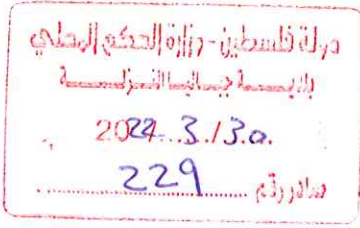 دولة فلسطين - وزارة الحكم المحلي
بلديـــة جباليا النـزلـــة
2022/3/30
صادر رقم 229